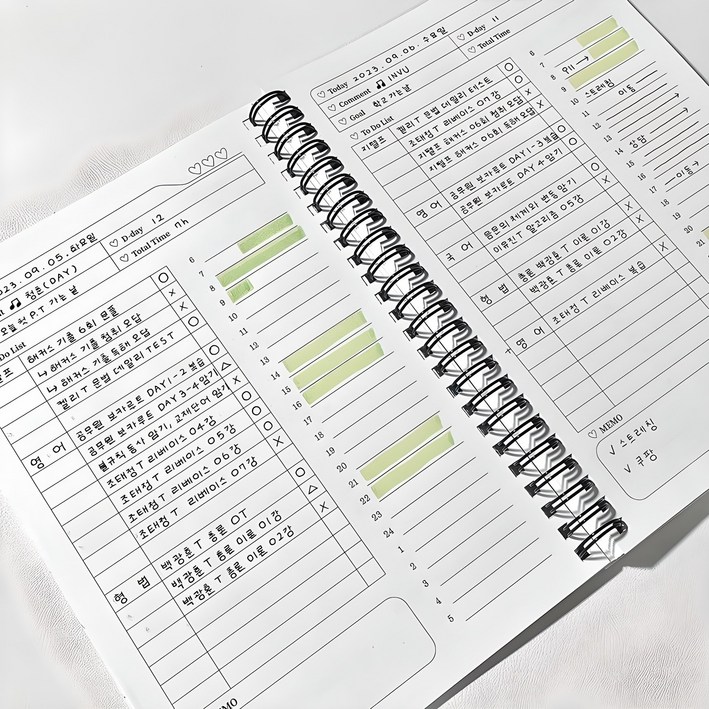 2023. 09. 05. 화요일
♡ D-day 12
♫ 청춘 (DAY)
♡ Total Time 7h
오늘 첫 P.T 가는 날
To Do List
해커스 기출 6회 모플 ○
↳ 해커스 기출 청취 오답 ×
↳ 해커스 기출 독해 오답 ×
켈리T 문법 데일리 TEST ○
영어 공무원 보카루트 DAY1-2 복습 ○
공무원 보카루트 DAY3-4 암기 △
불규칙 동사 암기, 교재단어 암기 ×
조태정T 리베이스 04강 ○
조태정T 리베이스 05강 ○
조태정T 리베이스 06강 ○
조태정T 리베이스 07강 ×
형법 백광훈T 총론 OT ○
백광훈T 총론 이론 01강 △
백광훈T 총론 이론 02강 ×
MEMO
6
7
8
9
10
11
12
13
14
15
16
17
18
19
20
21
22
23
24
1
2
3
4
5
♡ Today 2023. 09. 06. 수요일
♡ D-day 11
♡ Comment ♫ INVU
♡ Total Time
♡ Goal 학교 가는 날
♡ To Do List
지텔프 켈리T 문법 데일리 테스트 ○
조태정T 리베이스 07강 ○
지텔프 해커스 06회 청취 오답 ×
지텔프 해커스 06회 독해 오답 ×
영어 공무원 보카루트 DAY1-3 복습 ○
공무원 보카루트 DAY4 암기 ○
국어 음운의 체계와 변동 암기 ×
이유진T 알고리즘 05강 ○
형법 총론 백광훈T 이론 01강 ○
백광훈T 총론 이론 02강 ×
+ 영어 조태정T 리베이스 복습 ○
♡ MEMO
√ 스트레칭
√ 쿠팡
6
7
8
9
10 스트레칭
11 이동 →
12
13
14 상담
15
16
17 이동 →
18
19
20
21